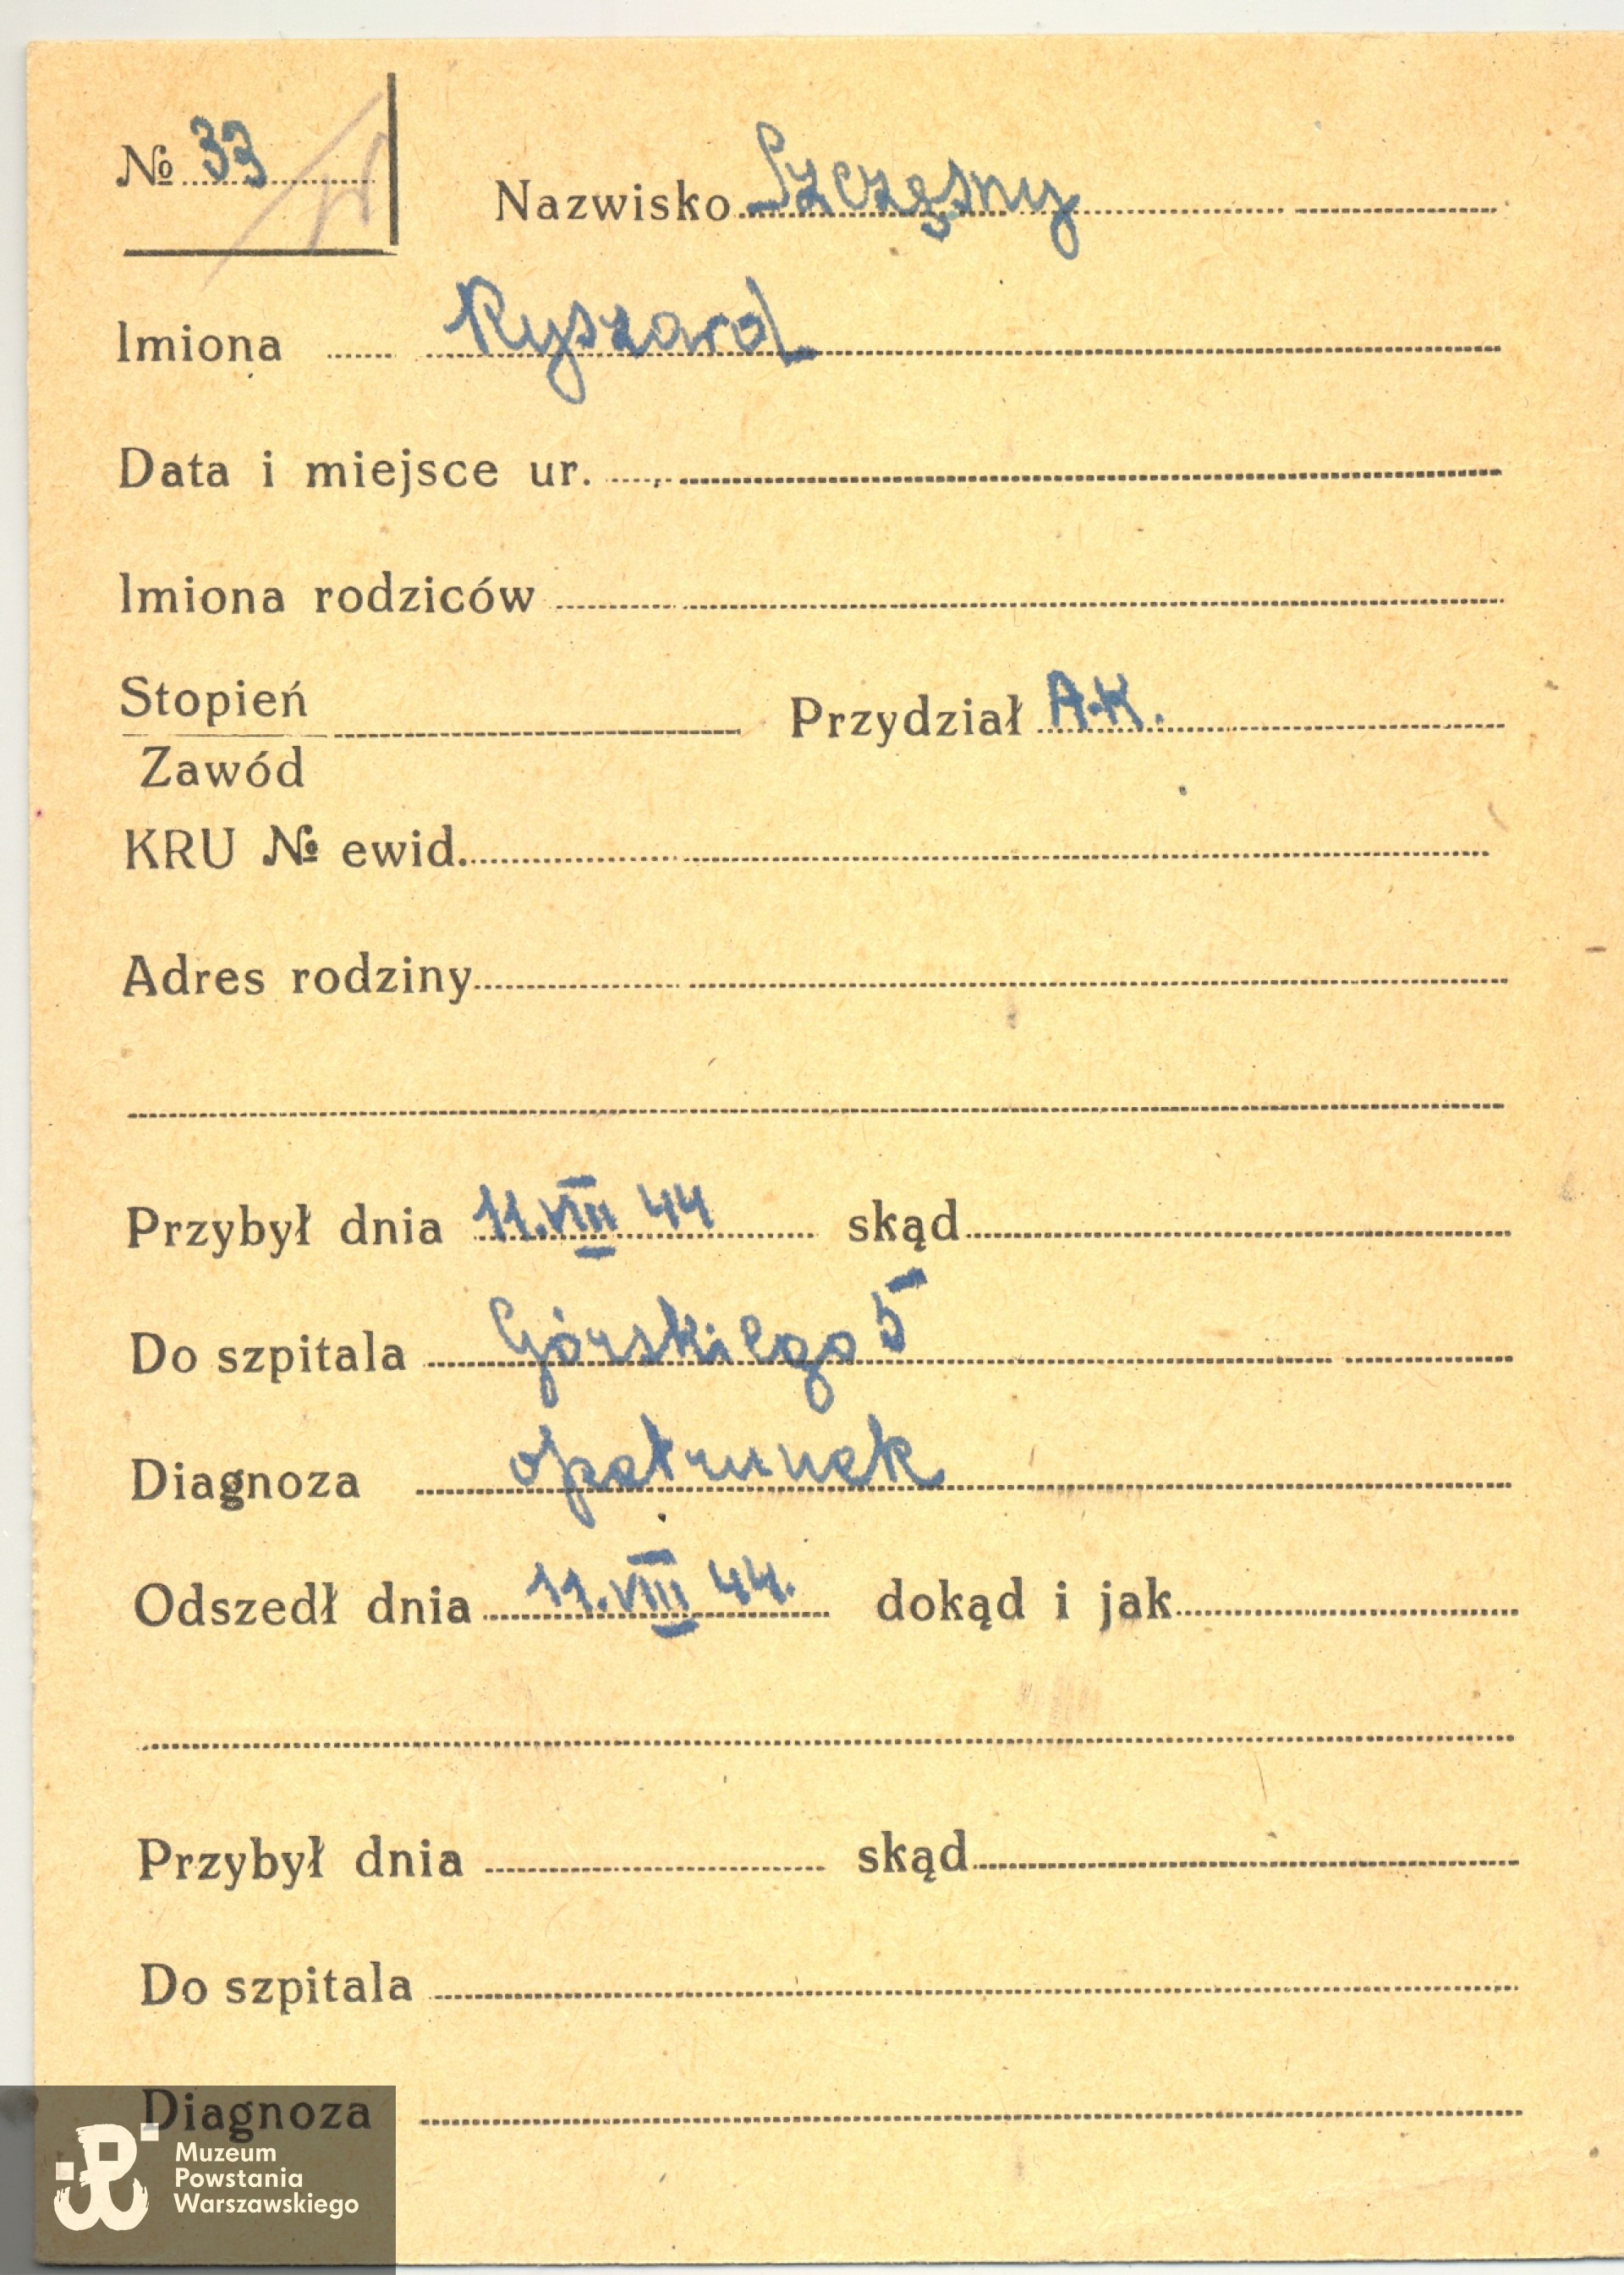 № 33
Nazwisko Szczęsny
Imiona Ryszard
Data i miejsce ur.
Imiona rodziców
Stopień
Przydział A.K.
Zawód
KRU № ewid.
Adres rodziny
Przybył dnia 11.VIII 44 skąd
Do szpitala Górskiego 5
Diagnoza opatrunek
Odszedł dnia 11.VIII 44. dokąd i jak
Przybył dnia skąd
Do szpitala
Diagnoza
Muzeum
Powstania
Warszawskiego